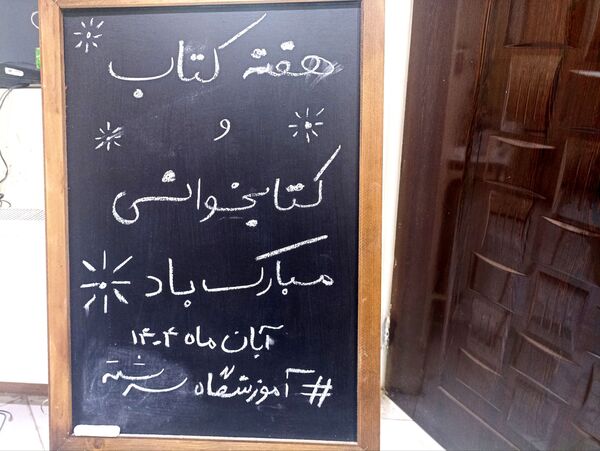 هفته کتاب
و
کتابخوانی
مبارک باد
آبان ماه ۱۴۰۴
#آموزشگاه سرشته